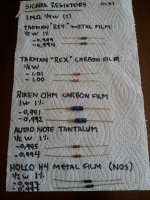 SIGNAL RESISTORS
1MΩ ½W (2)
TAKMAN "REX" METAL FILM
½ W 1%
-0,999
-0,994
TAKMAN "REX" CARBON FILM
½ W
- 1.01
- 1.00
RIKEN OHM CARBON FILM
1W 1%
-0,991
-0,992
AUDIO NOTE TANTALUM
½W 1%
-0,995
-0,994
HOLCO H4 METAL FILM (NOS)
½ W 1%
-0,997